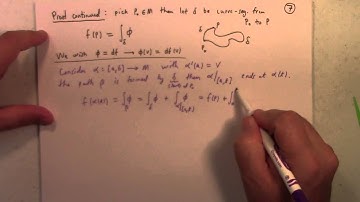 Proof continued: pick P₀ ∈ M then let δ be curve-seg. from P₀ to P
7
f(P) = ∫_δ φ
δ
P
P₀
δ
We wish φ = df → φ(v) = df(v)
Consider α: [a,b] → M with α'(a) = v
the path β is formed by δ then α|[a,t] ends at α(t).
f(α(t)) = ∫_β φ = ∫_δ φ + ∫_α|[a,t] φ = f(P) + ∫